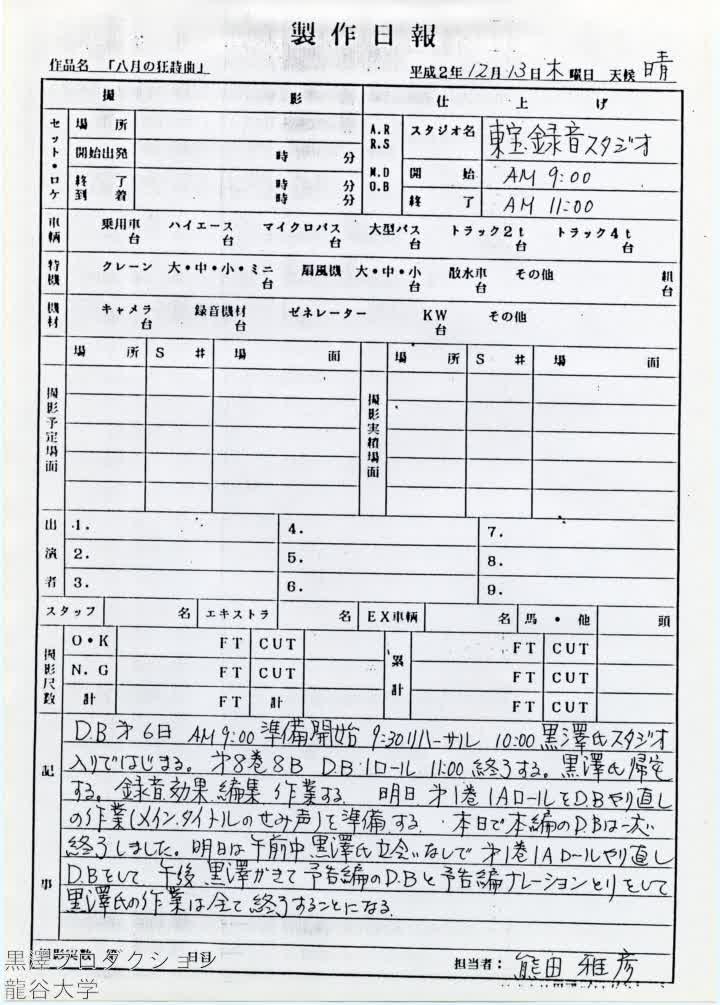 製作日報
作品名 「八月の狂詩曲」 平成2年12月13日木曜日 天候 晴
撮 影 仕 上 げ
セット・ロケ 場 所 A.R R.S スタジオ名 東宝録音スタジオ
開始出発 時 分 M.D D.B 開 始 AM 9:00
終 了 時 分 終 了 AM 11:00
到 着 時 分
車輌 乗用車 台 ハイエース 台 マイクロバス 台 大型バス 台 トラック2t 台 トラック4t 台
特機 クレーン 大・中・小・ミニ 台 扇風機 大・中・小 台 散水車 台 その他 組 台
機材 キャメラ 台 録音機材 台 ゼネレーター KW 台 その他
撮影予定場面 場 所 S # 場 面 撮影実績場面 場 所 S # 場 面
出演者 1. 4. 7.
2. 5. 8.
3. 6. 9.
スタッフ 名 エキストラ 名 EX車輌 名 馬・他 頭
撮影尺数 O・K FT CUT 累計 FT CUT
N.G FT CUT FT CUT
計 FT 計 FT CUT
記事
D.B 第6日 AM9:00 準備開始 9:30リハーサル 10:00黒澤氏スタジオ
入りではじまる。第8巻8B D.B 1ロール 11:00終了する。黒澤氏帰宅
する。録音、効果、編集、作業する。 明日 第1巻1AロールをD.Bやり直し
の作業(メイン.タイトルのせみ声)を準備する。 本日で本編のD.Bは一応
終了しました。明日は午前中黒澤氏立会いなしで第1巻1Aロールやり直し
D.Bをして 午後 黒澤がきて予告編のD.Bと予告編ナレーションとりをして
黒澤氏の作業は全て終了することになる。
撮影実数 第 日目 担当者: 熊田雅彦
黒澤プロダクション
龍谷大学